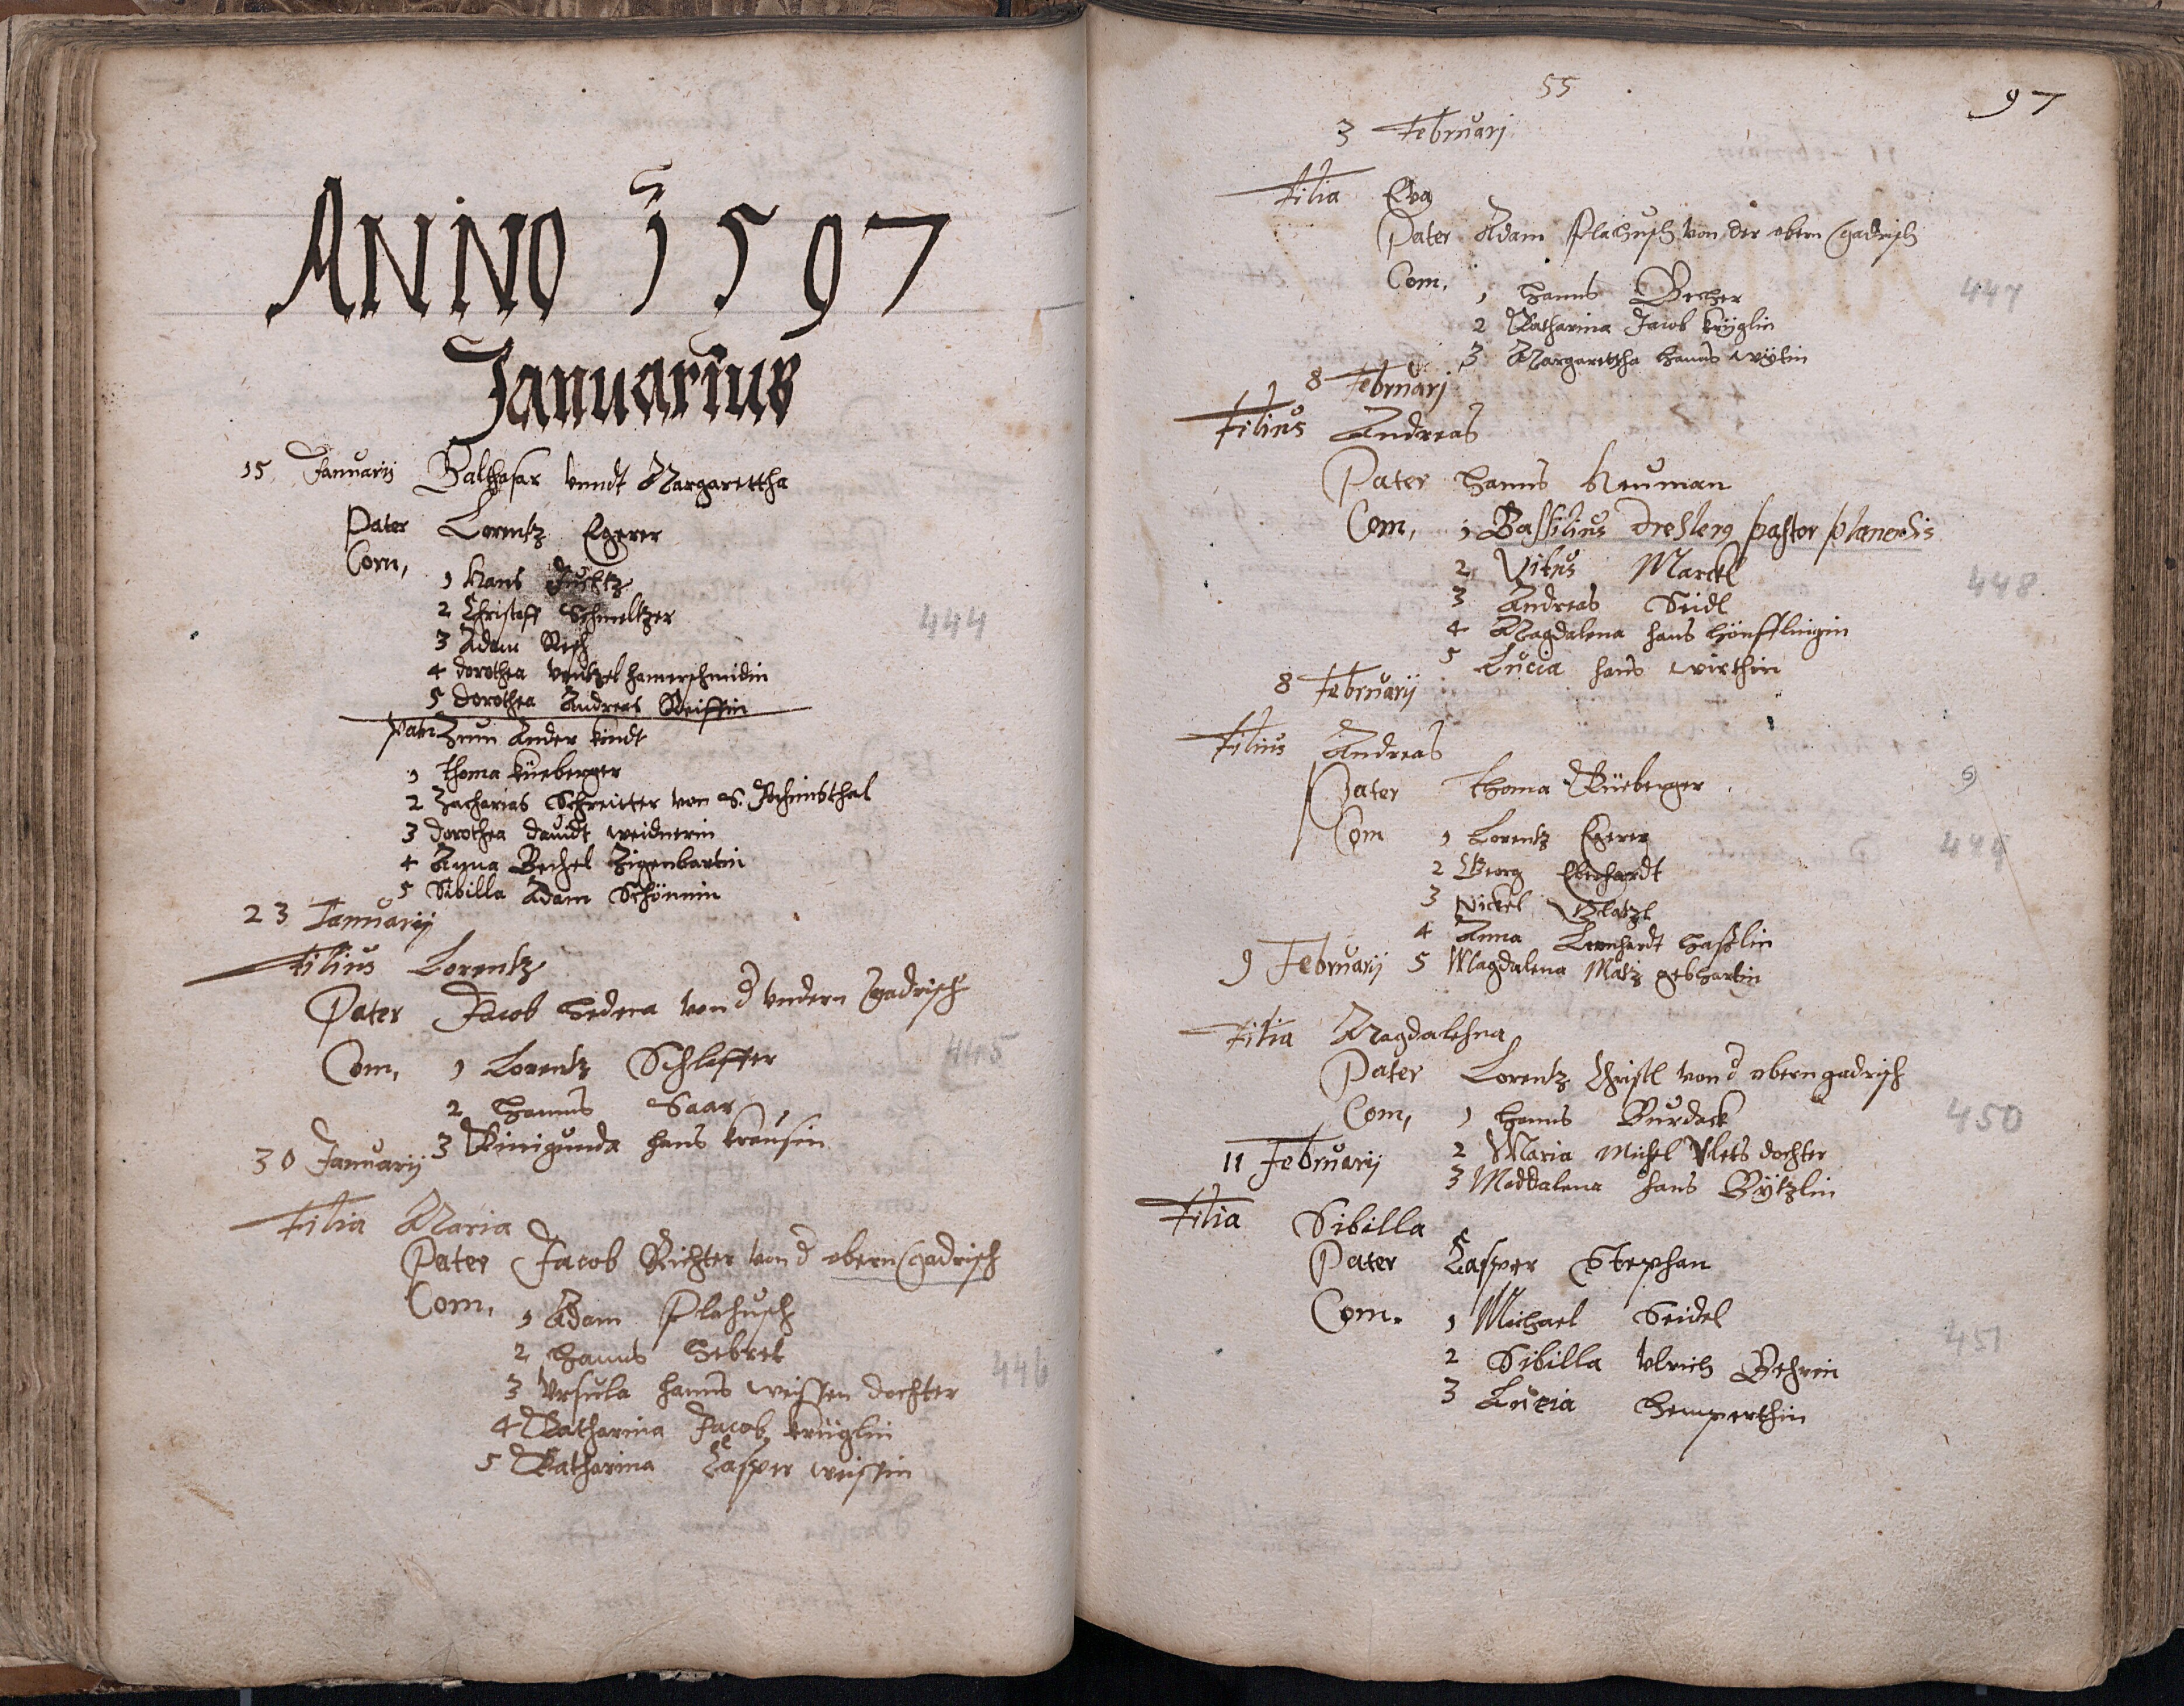 ANNO 1597
Januarius
15 Januarij Balthasar vnndt Margarettha
Pater Lorentz Egerer
Com, 1 Hans
2 Christoff Schmeltzer
3 Adam Resch
4 dorothea wentzel hamerschmidin
5 dorothea Andreas Reissin
Patri Zum Ander kindt
1 Thoma Küeberger
2 Zacharias Schreitter von S. Jochimsthal
3 dorothea dauidt weidnerin
4 Anna Zigenbartin
5 Sibilla Adam Schönnin
444
23 Januarij
Filius Lorentz
Pater Jacob hedera von d vndern gadrisch
Com, 1 Lorentz Schleffer
445
2 Hanns Saar
3 Kinigunda hans krausin
30 Januarij
Filia Maria
Pater Jacob Richter von d obern gadrisch
Com, 1 Adam Plahusch
2 Hanns Hebret
446
3 Vrsula hanns weissen dochter
4 Katharina Jacob krüglin
5 Katharina Casper weissin
55
97
3 Februarj
Filia Eva
Pater Adam Plahusch von der obern gadrisch
Com, 1 Hanns Becher
447
2 Katharina Jacob krüglin
3 Margarettha hanns
8 Februarj
Filius Andreas
Pater Hanns Neuman
Com, 1 Bassilius Dresler pastor planensis
2 Vitus Marckl
448
3 Andreas Seidl
4 Magdalena hans
5 Lucia hans wirthin
8 Februarij
Filius Andreas
Pater Thoma Küeberger
Com 1 Lorentz Egerer
449
2 Georg Eberhardt
3 Nickel
4 Anna Lennhardt haßlin
5 Magdalena Matz gebhartin
9 Februarij
Filia Magdalehna
Pater Lorentz Christl von d obern gadrisch
Com, 1 Hanns Burdack
450
2 Maria Michel dochter
3 Maddalena hans
11 Februarij
Filia Sibilla
Pater Casper Stephan
Com. 1 Michael Seidel
451
2 Sibilla Vlrich Behrin
3 Lucia Hemperthin